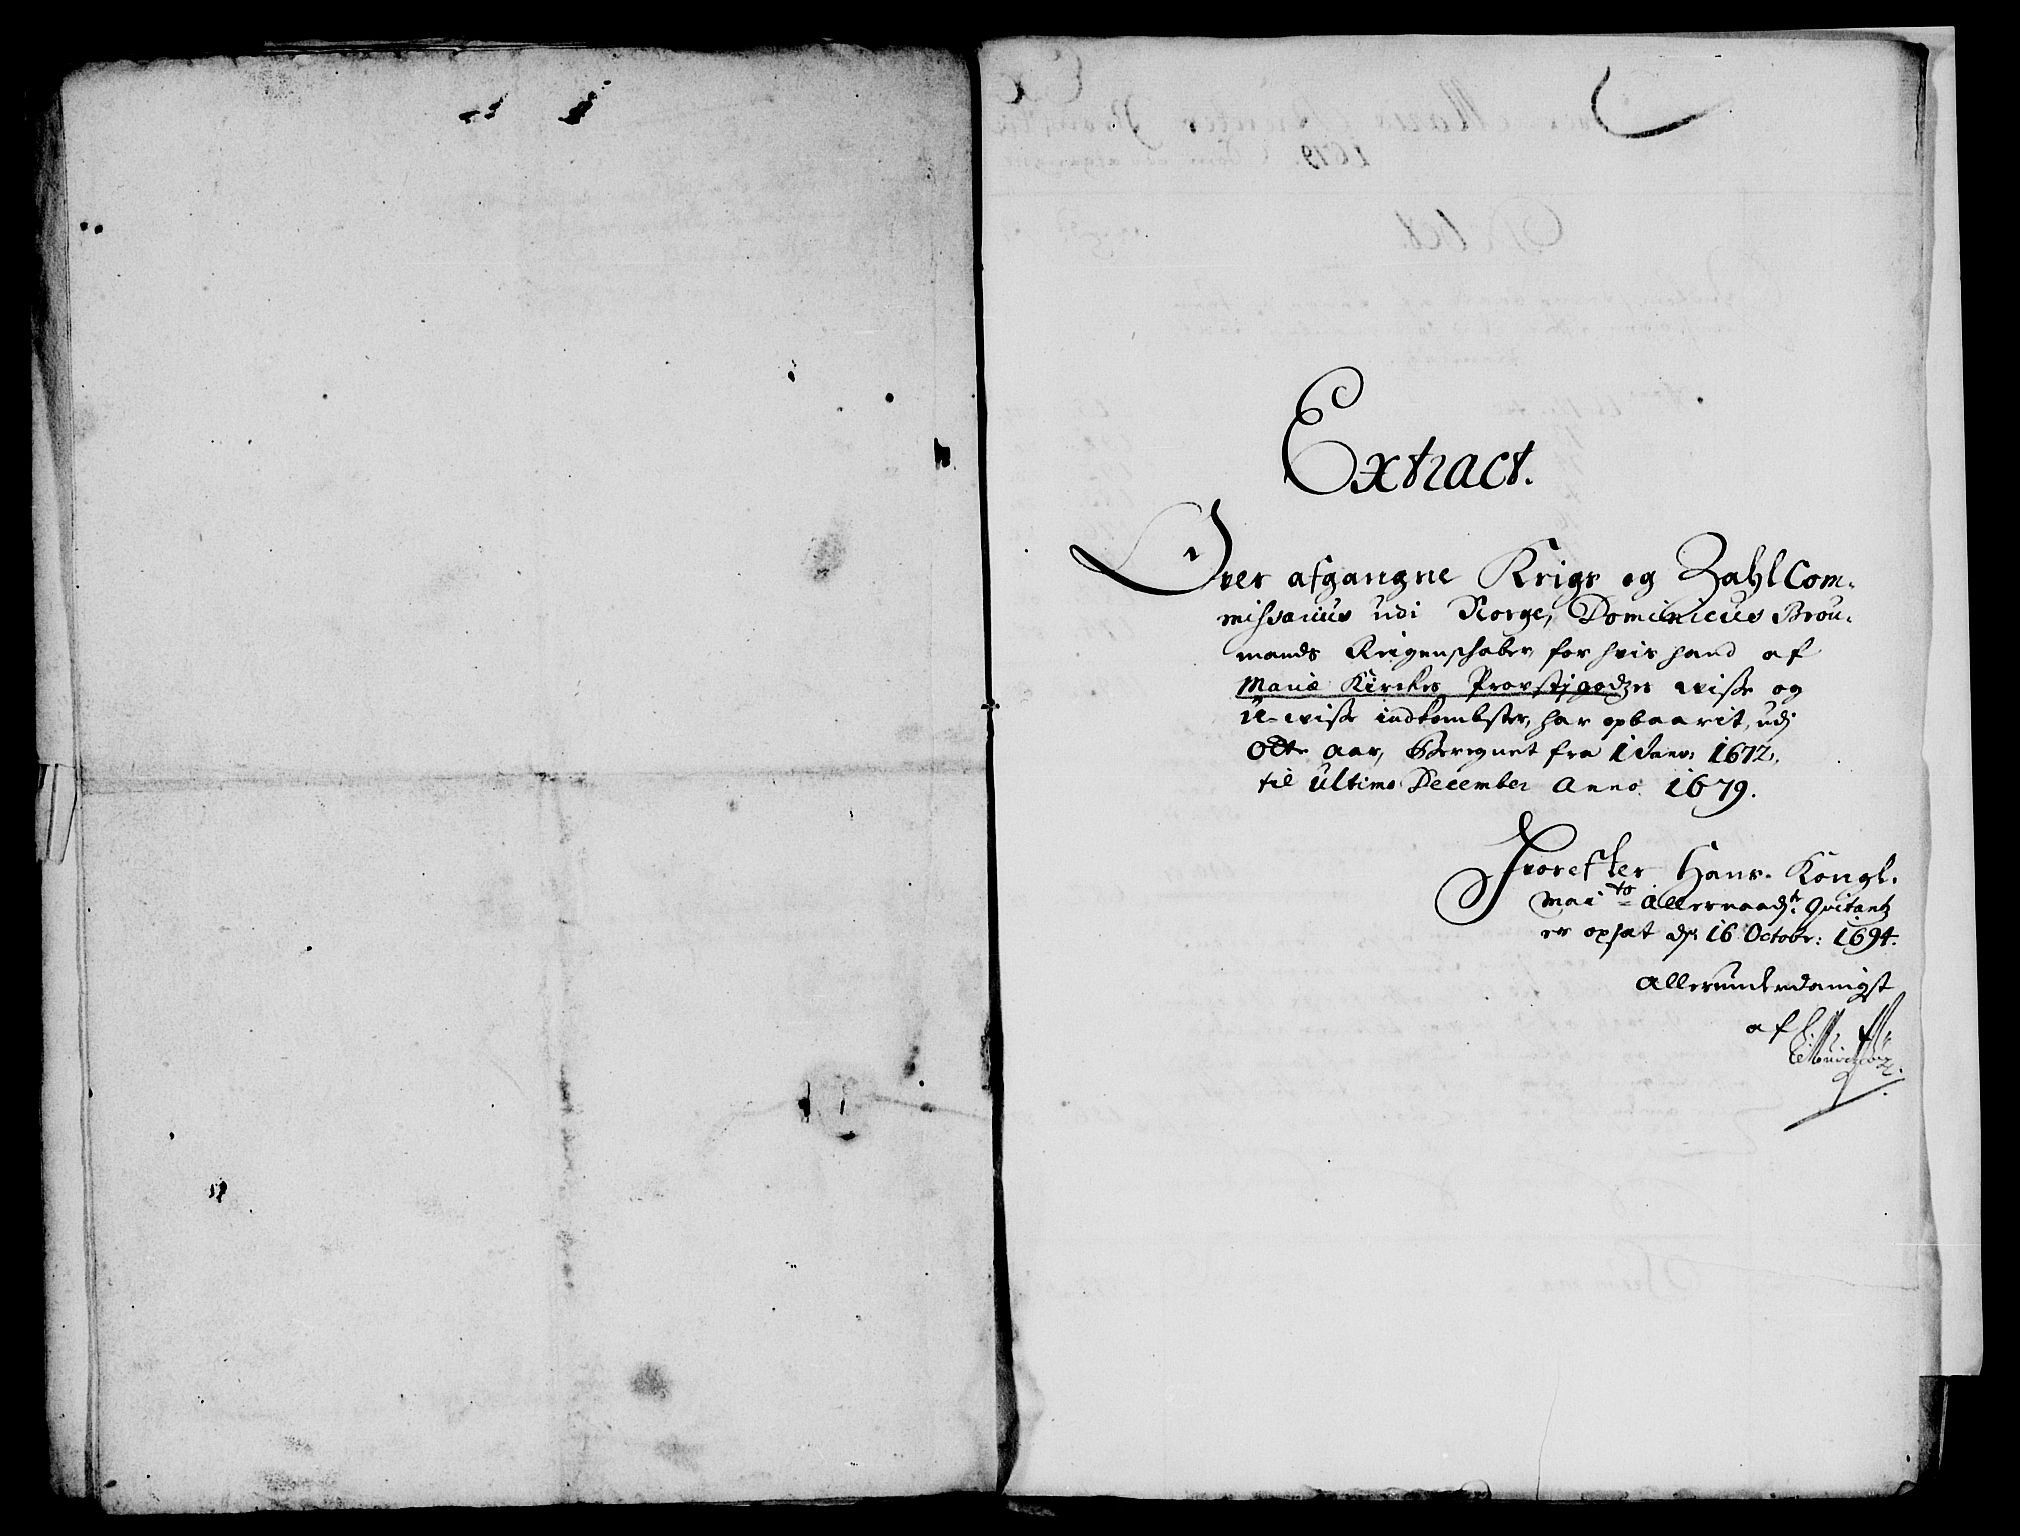 Extract.
Over afgangne Krigs og Zahlcom-
missarius udi Norge, Dominicus Brou-
mands Reigenschaber, for hvis hand af
Mariæ Kirckes Provstjgodzes wisse og
U-wisse indkombster, har opbaarit, udj
Otte Aar, Beregnet fra 1 Janr: 1672,
til ultimo December Anno 1679.
Hvorefter Hans Kongl.
Mai:ts Allernaadst: Qvitantz
er opsat d: 16 Octobr: 1694.
Allerunderdanigst
af